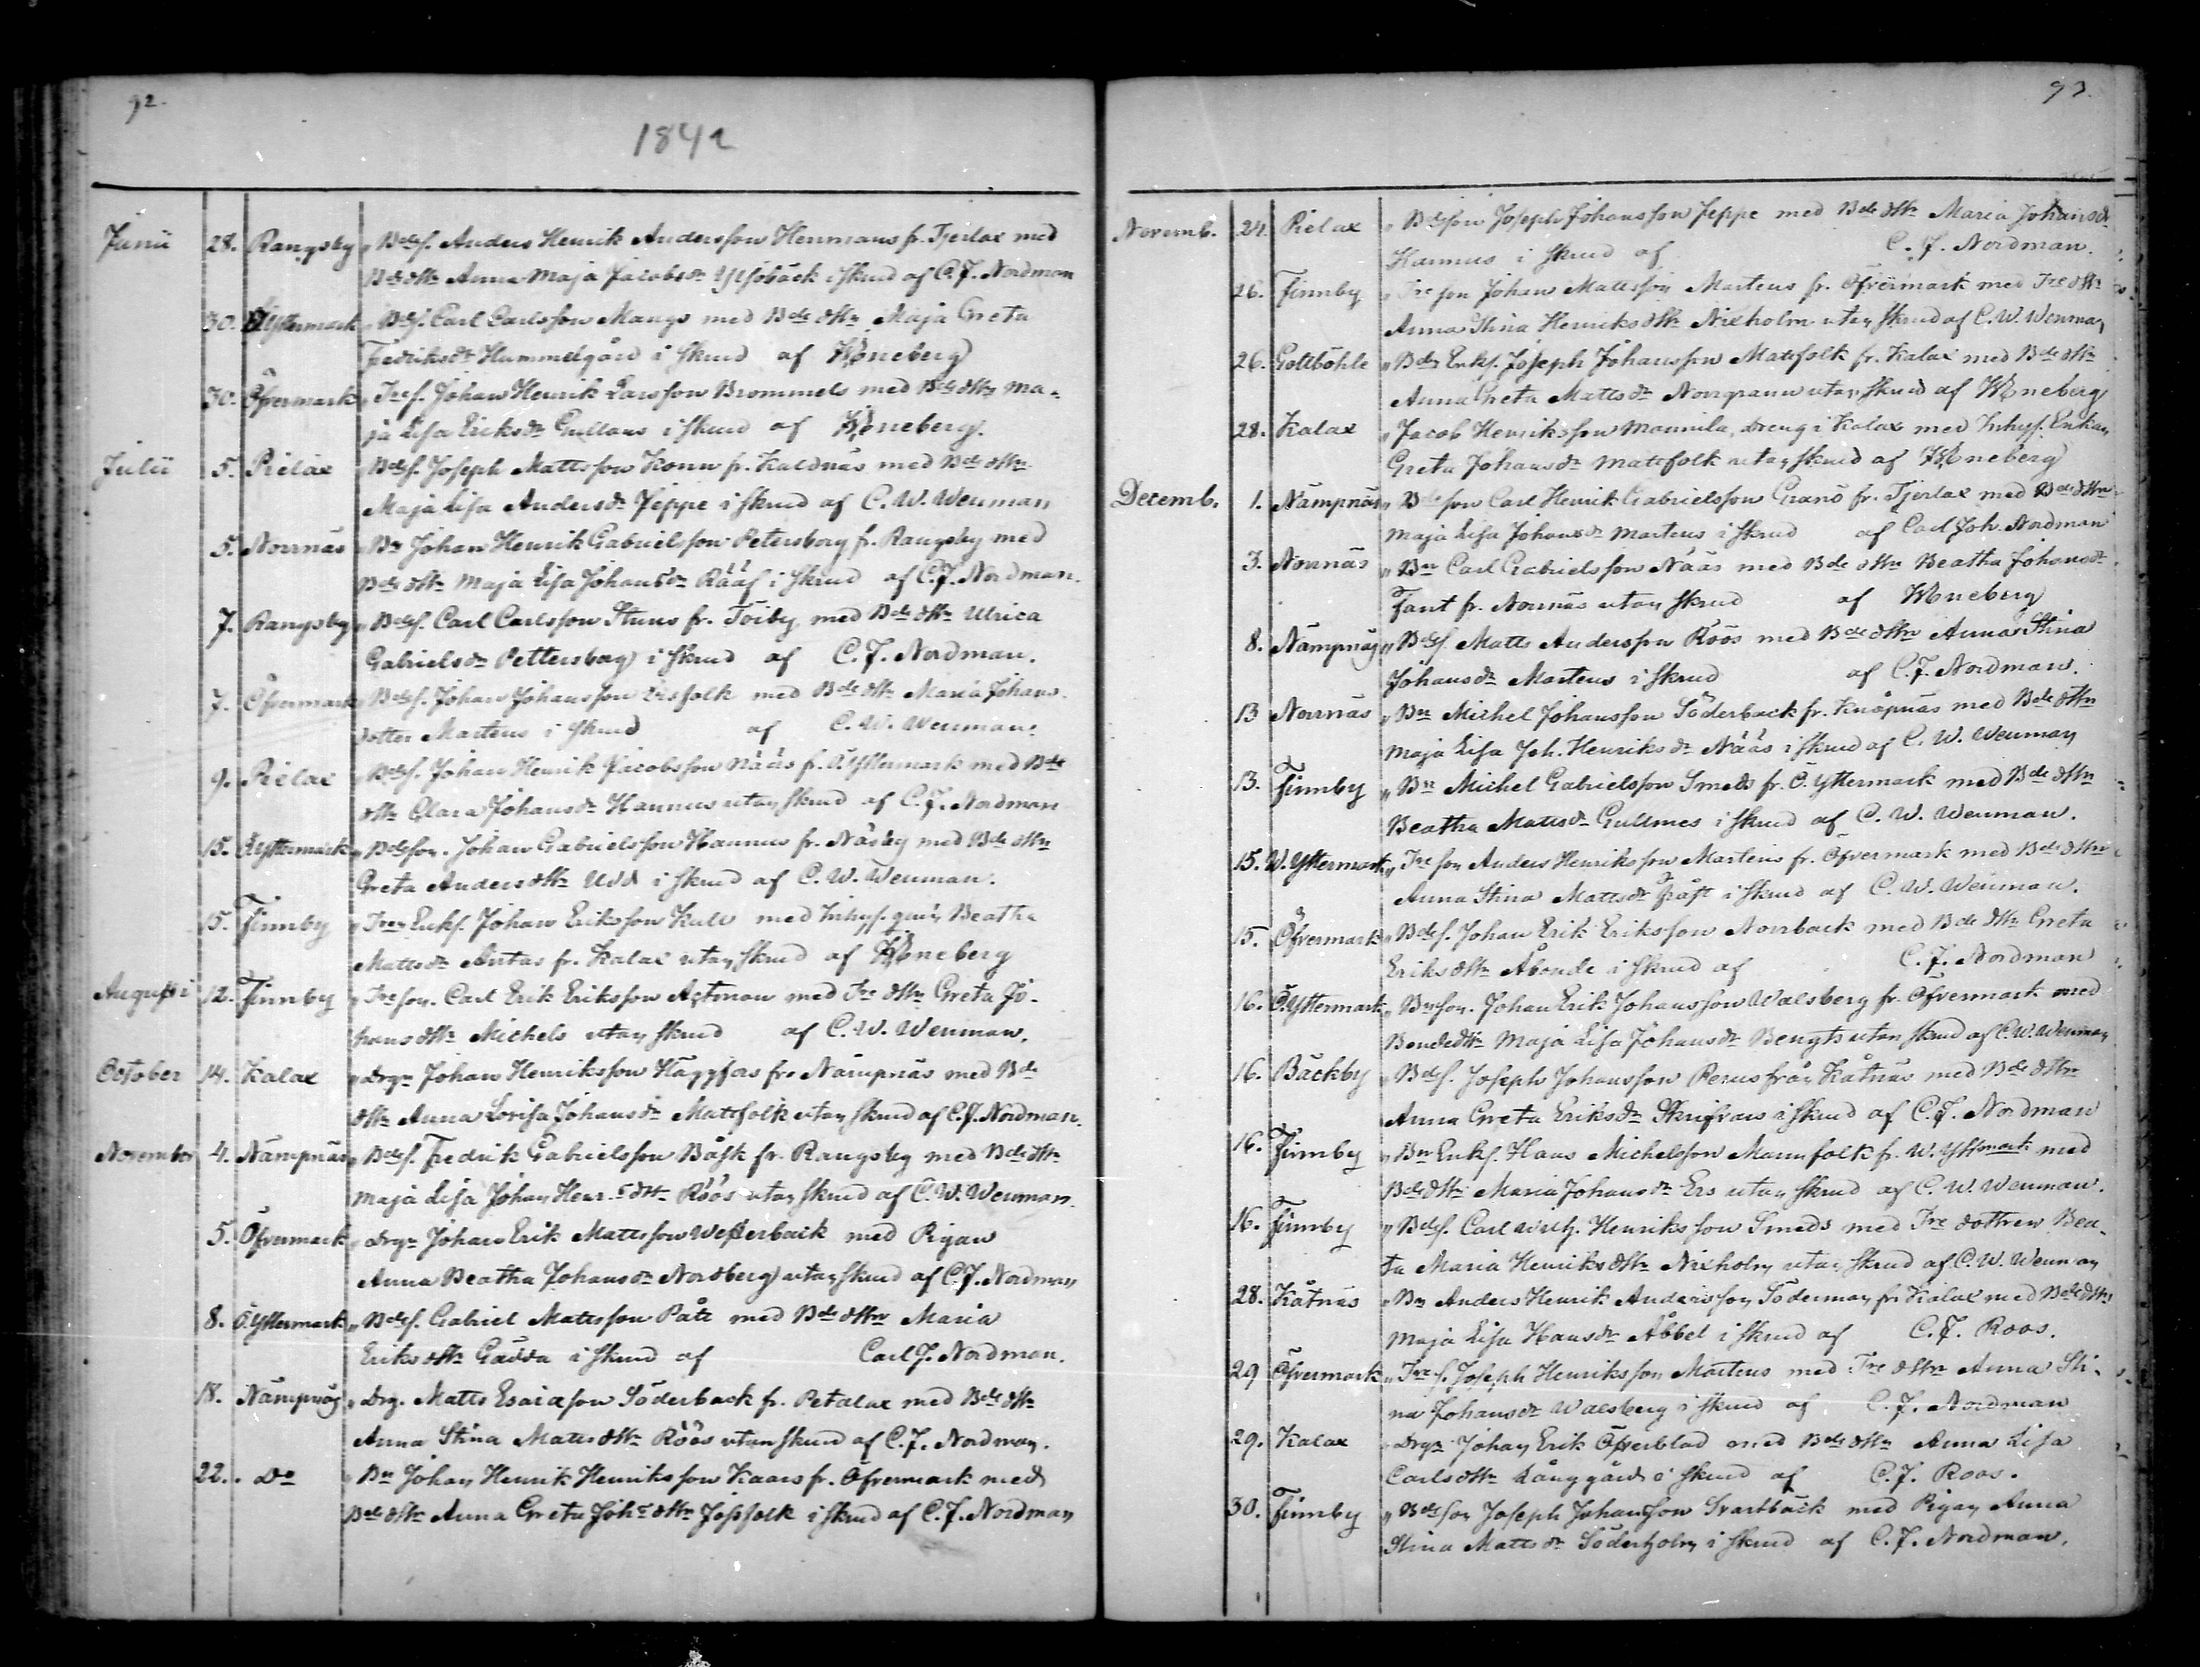 92.
1842
Junii 28. Rangsby " Bdes. Anders Henrik Andersson Hermans fr. Tjerlax med
Bde dttr Anna Maja Jacobsdr Ulfsbäck i skrud af C. J. Nordman
30. Ö Yttermark " Bdes. Carl Carlsson Mangs med Bde dttr Maja Greta
Fredriksdr Hummelgård i skrud af Heneberg
30. Öfvermark " Tres. Johan Henrik Larsson Brommels med Bde dttr Ma-
ja Lisa Eriksdr Gullans i skrud af Heneberg.
Julii 5. Pielax " Bdes. Joseph Mattsson Konn fr. Kaldnäs med Bde dttr
Maja Lisa Andersdr Jeppe i skrud af C. W. Wenman
5. Norrnäs " Bn Johan Henrik Gabrielsson Petersborg f. Rangsby med
Bde dttr Maja Lisa Johansdr Rääf i skrud af C. J. Nordman.
7. Rangsby " Bdes. Carl Carlsson Stuns fr. Töiby med Bde dttr Ulrica
Gabrielsdr Pettersborg i skrud af C. J. Nordman.
7. Öfvermark " Bdes. Johan Johansson Ersfolk med Bde dttr Maria Johans-
dotter Martens i skrud af C. W. Wenman.
9. Pielax " Bdes. Johan Henrik Jacobsson Nääs f. Ö. Yttermark med Bde
dttr Clara Johansdr Hannus utan skrud af C. J. Nordman
15. Ö Yttermark " Bdeson. Johan Gabrielsson Hannus fr. Näsby med Bde dttr
Greta Andersdttr Udd i skrud af C. W. Wenman.
15. Finnby " Tren Enkl. Johan Eriksson Kull med Inhys. Beatha
Mattsdr Antas fr. Kalax utan skrud af Heneberg
Augusti 12. Finnby " Treson. Carl Erik Eriksson Aztman med Tre dttr Greta Jo-
hansdttr Michels utan skrud af C. W. Wenman.
October 14. Kalax " Drgn Johan Henriksson Häggfors fr. Nämpnäs med Bde
dttr Anna Lovisa Johansdr Mattfolk utan skrud af C. J. Nordman.
November 4. Nämpnäs " Bdes. Fredrik Gabrielsson Båsk fr. Rangsby med Bde dttr
Maja Lisa Johan Henr.s dttr Röös utan skrud af C. W. Wenman.
5. Öfvermark " Drgn Johan Erik Mattsson Westerback med Pigan
Anna Beatha Johansdr Nordberg utan skrud af C. J. Nordman
8. Ö. Yttermark " Bdes. Gabriel Mattsson Pått med Bde dttr Maria
Eriksdttr Gädda i skrud af Carl J. Nordman.
18. Nämpnäs " Drg. Matts Esaiasson Söderback fr. Petalax med Bde dttr
Anna Stina Mattsdttr Röös utan skrud af C. J. Nordman.
22. Do " Bn Johan Henrik Henriksson Kaars fr. Öfvermark med
Bde dttr Anna Greta Johs dttr Josfolk i skrud af C. J. Nordman
93.
Novemb. 24. Pielax " Bdeson Joseph Johansson Jeppe med Bde dttr Maria Johansdr
Hannus i skrud af C. J. Nordman.
26. Finnby " Treson Johan Mattsson Martens fr. Öfvermark med Tre dttr
Anna Stina Henriksdttr Nixholm utan skrud af C. W. Wenman
26. Gottböhle " Bdn Enkl. Joseph Johansson Mattfolk fr. Kalax med Bde dttr
Anna Greta Mattsdr Norrgrann utan skrud af Heneberg
28. Kalax " Jacob Henriksson Mannila, dreng i Kalax med Inhys. Enkan
Greta Johansdr Mattfolk utan skrud af Heneberg
Decemb. 1. Nämpnäs " Bdeson Carl Henrik Gabrielsson Granö fr. Tjerlax med Bde dttr
Maja Lisa Johansdr Martens i skrud af Carl Joh. Nordman
3. Norrnäs " Bn Carl Gabrielsson Nääs med Bde dttr Beatha Johansdr
Fant fr. Norrnäs utan skrud af Heneberg
8. Nämpnäs " Bdes. Matts Andersson Röös med Bde dttr Anna Stina
Johansdr Martens i skrud af C. J. Nordman.
13 Norrnäs " Bn Michel Johansson Söderback fr. Knåpnäs med Bde dttr
Maja Lisa Joh. Henriksdr Nääs i skrud af C. W. Wenman
13. Finnby " Bn Michel Gabrielsson Smeds fr. Ö. Yttermark med Bde dttr
Beatha Mattsdr Gullmes i skrud af C. W. Wenman.
15. W. Yttermark " Treson Anders Henriksson Martens fr. Öfvermark med Bde dttr
Anna Stina Mattsdr i skrud af C. W. Wenman.
15. Öfvermark " Bdes. Johan Erik Eriksson Norrback med Bde dttr Greta
Eriksdttr Åbonde i skrud af C. J. Nordman
16. Ö. Yttermark " Bnson. Johan Erik Johansson Walsberg fr. Öfvermark med
Bondedttr Maja Lisa Johansdr Bengts utan skrud af C. W. Wenman
16. Bäckby " Bdes. Joseph Johansson Perus från Kåtnäs med Bde dttr
Anna Greta Eriksdr Skrifvars i skrud af C. J. Nordman
16. Finnby " Bn Enkl. Hans Michelsson Mannfolk fr. W. Yttermark med
Bde dttr Maria Johansdr Ers utan skrud af C. W. Wenman.
16. Finnby " Bdes. Carl Wilh. Henriksson Smeds med Tre dottren Bea-
ta Maria Henriksdttr Nixholm utan skrud af C. W. Wenman
28. Kåtnäs " Bn Anders Henrik Andersson Söderman fr. Kalax med Bde dttr
Maja Lisa Hansdr Åbbel i skrud af C. J. Roos.
29 Öfvermark " Tres. Joseph Henriksson Martens med Tre dttr Anna Sti-
na Johansdr Walsberg i skrud af C. J. Nordman
29. Kalax " Drgn Johan Erik Öfverblad med Bde dttr Anna Lisa
Carlsdttr Långgård i skrud af C. J. Roos.
30. Finnby " Bdeson Joseph Johansson Svartbäck med Pigan Anna
Stina Mattsdr Söderholm i skrud af C. J. Nordman.